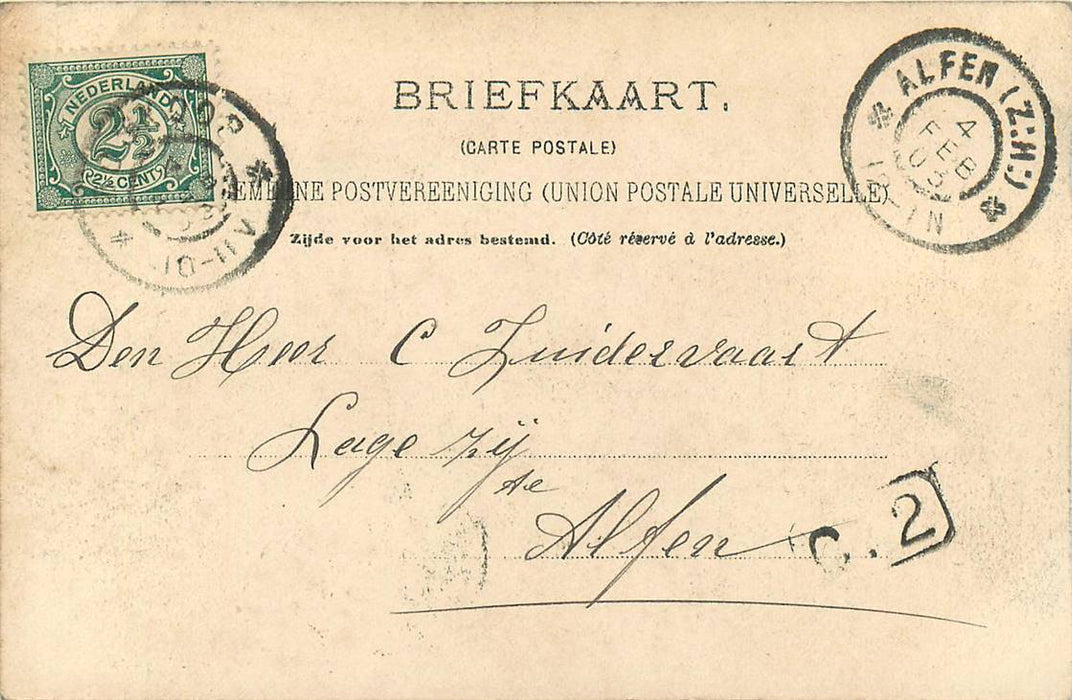 NEDERLAND
2½
2½ CENT
BRIEFKAART.
(CARTE POSTALE)
POSTVEREENIGING (UNION POSTALE UNIVERSELLE)
Zijde voor het adres bestemd. (Côté réservé à l'adresse.)
ALFEN (Z:H:)
4
FEB
03
12-1N
Den Heer C Zuidervaart
Lage Zij
te
Alfen
C. 2